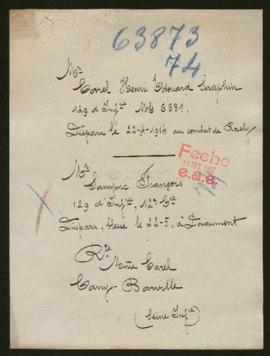 63873
74
Mr
Carel Henri Edouard Seraphin
129 d'Infie Mle 6881.
Disparu le 22-8-1914 au combat de
Fecho
e.a.e.
Mr
François
129 d'Infie, 12e Cie
Disparu, blessé le 22-5, à Douaumont
Rte
Mme Carel
Cany-Barville
(Seine Infre)